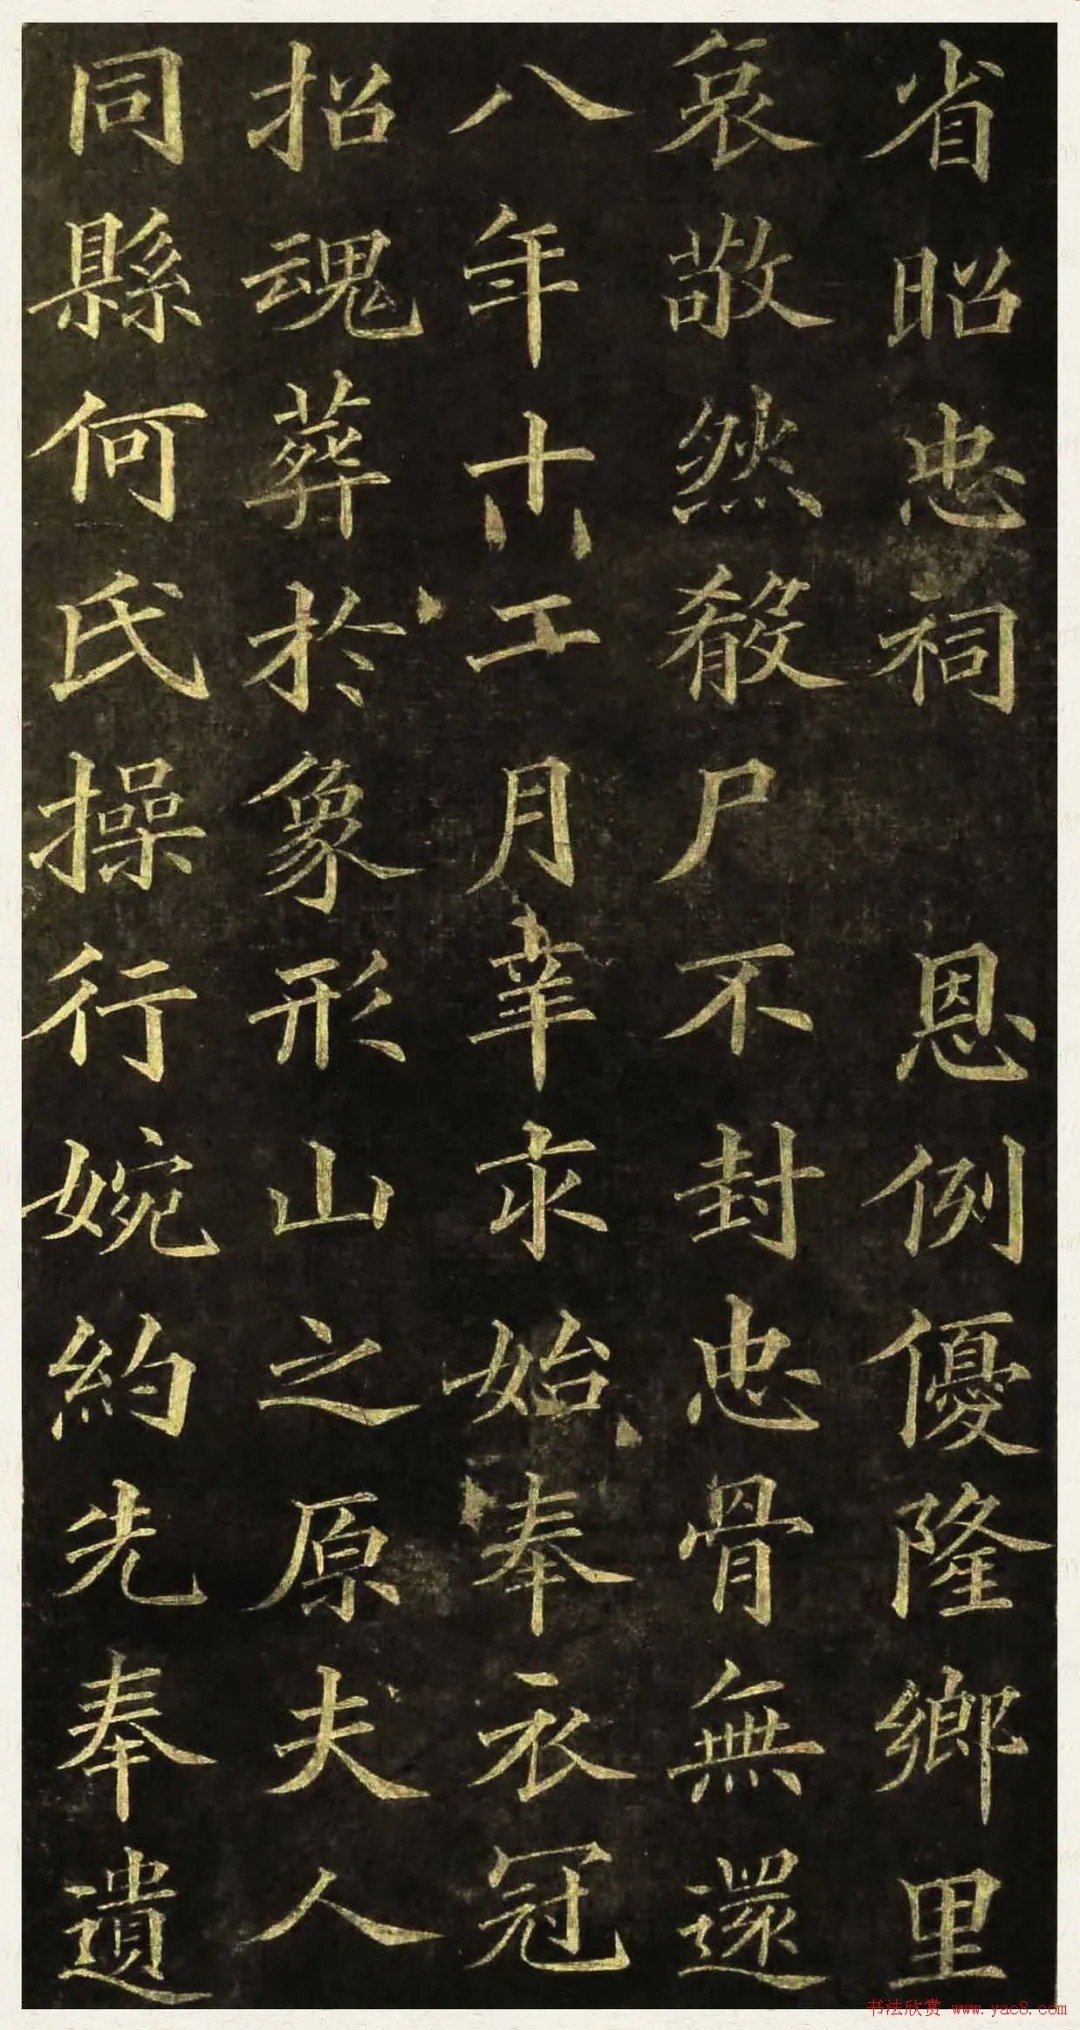 省昭忠祠 恩例優隆鄉里
哀敬然殽尸不封忠骨無還
八年十 月 始奉衣冠
招魂葬於象形山之原夫人
同縣何氏操行婉約先奉遺
书法欣赏 www.yac8.com